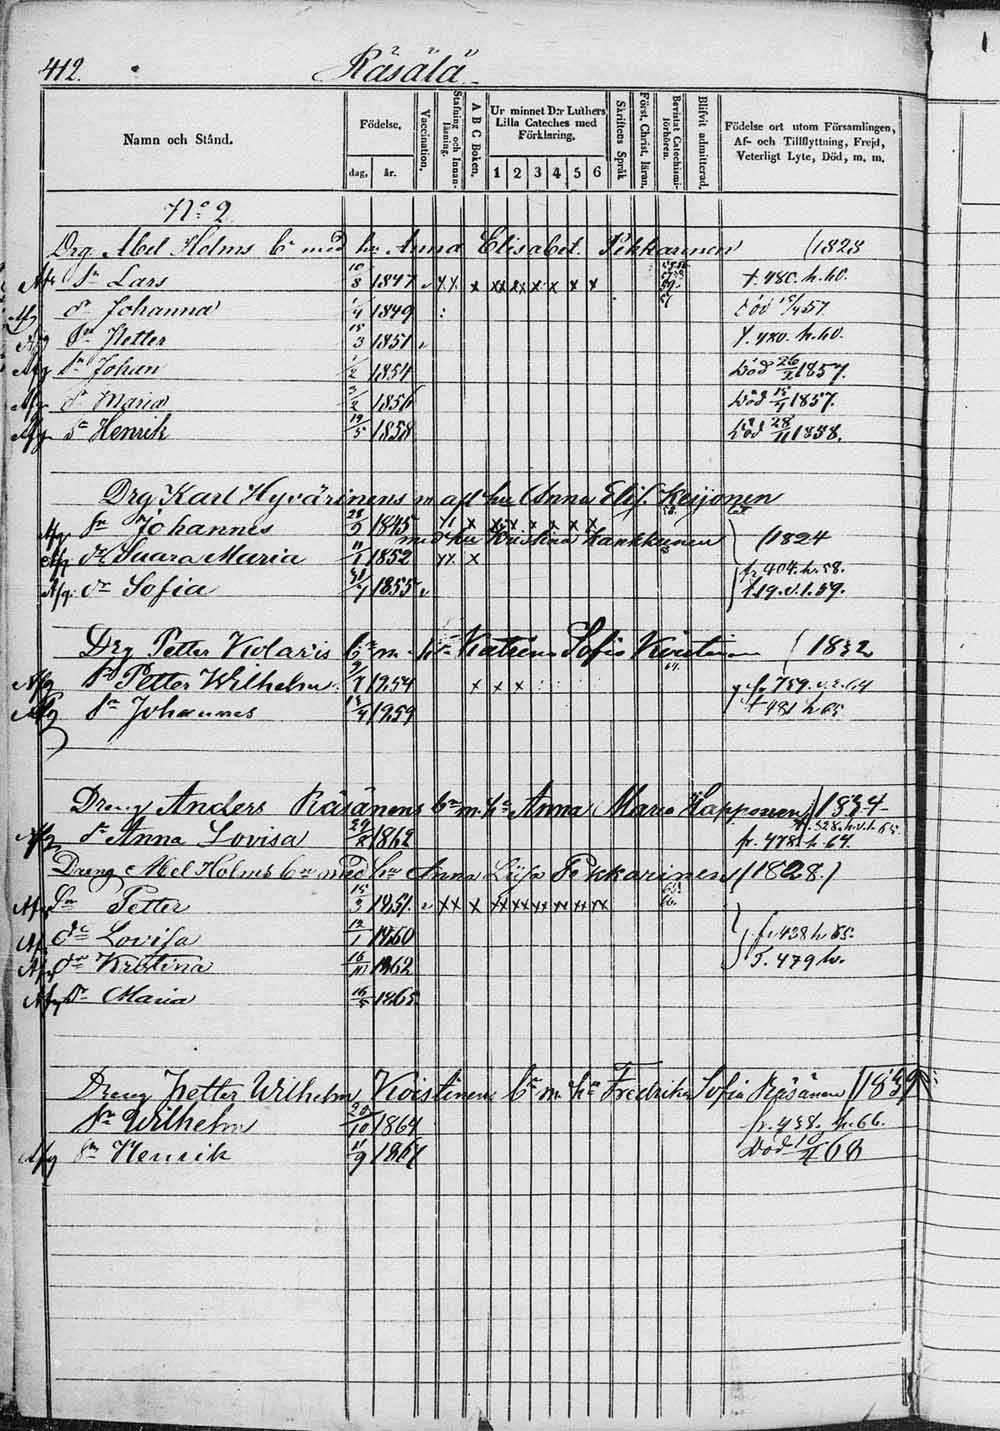 412. Räsälä
Namn och Stånd. Födelse, dag, år. Vaccination. Stafning och Innanläsning. A B C Boken. Ur minnet D:r Luthers Lilla Cateches med Förklaring. 1 2 3 4 5 6 Skriftens Språk Först. Christ. läran. Bevistat Catechismiförhören. Blifvit admitterad. Födelse ort utom Församlingen, Af- och Tillflyttning, Frejd, Veterligt Lyte, Död, m. m.
No 2
Drg. Abel Holms bn med hu Anna Elisabet Pekkarinen (1828
Afg sn Lars 10/8 1847 x x x xx xx x x x x t. 480. h. 60.
Afg dr Johanna 1/4 1849 död 15/4 57.
Afg sn Petter 15/3 1851 t. 480. h. 60.
Afg sn Johan 1/2 1854 död 26/2 1857.
Afg dr Maria 3/2 1856 död 15/4 1857.
Afg sn Henrik 19/5 1858 död 28/11 1858.
Drg Karl Hyvärinens m afl hu Anna Elis. Keijonen
Afg. sn Johannes 28/5 1845 x x x x x x x x
med hu Kristina Kankkunen (1824
Afg dr Saara Maria 1852 x x x
Afg. dr Sofia 1855 fr. 404. h. 58.
t. 19. v. l. 59.
Drg Petter Kolaris bn m. hu Katrina Sofia (1832
Afg sn Petter Wilhelm 1854 x x x fr. 759. v. l. 64
Afg sn Johannes 1859 t. 481 h. 65
Dreng Anders Räsänens bn m. hu Anna Maria Kapponen (1834
t. 328. h. v. l. 65.
Afg dr Anna Lovisa 1862 fr. 478. h. 64.
Dreng Abel Holms bn med hu Anna Liisa Pekkarinen (1828.)
Afg sn Petter 15/3 1851. xx x xx xx xx xx xx xx 65. 66.
Afg dr Lovisa 12/1 1860 fr. 438 h. 65.
Afg dr Kristina 16/11 1862 t. 479 h.
Afg dr Maria 16/5 1865
Dreng Petter Wilhelm Koistinens bn m. hu Fredrika Sofia Räsänen (1839
sn Wilhelm 20/10 1864 fr. 438. h. 66.
Afg sn Henrik 11/9 1867 Död 10/4 68